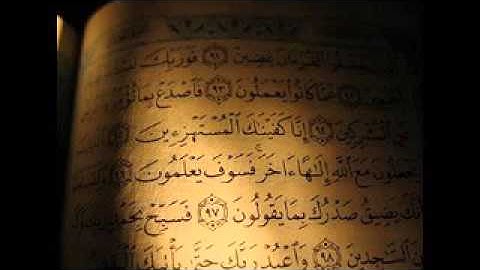 ٱلْقُرْءَانَ عِضِينَ ٩١ فَوَرَبِّكَ
عَمَّا كَانُوا۟ يَعْمَلُونَ ٩٣ فَٱصْدَعْ بِمَا
ٱلْمُشْرِكِينَ ٩٤ إِنَّا كَفَيْنَٰكَ ٱلْمُسْتَهْزِءِينَ
يَجْعَلُونَ مَعَ ٱللَّهِ إِلَٰهًا ءَاخَرَ فَسَوْفَ يَعْلَمُونَ ٩٦
يَضِيقُ صَدْرُكَ بِمَا يَقُولُونَ ٩٧ فَسَبِّحْ بِحَمْدِ رَبِّكَ
ٱلسَّٰجِدِينَ ٩٨ وَٱعْبُدْ رَبَّكَ حَتَّىٰ يَأْتِيَكَ